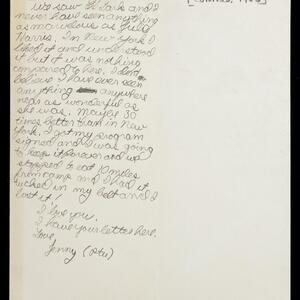 [Summer, 
we saw The Lark and I
never have seen anything
as marvelous as Julie
Harris. In New York I
liked it and understood
it but it was nothing
compared to here. I don't
believe I have ever seen
anything anywhere
near as wonderful as
she was. Maybe 30
times better than in New
York. I got my program
signed and I was going
to keep it forever and we
stopped to eat 10 miles
from camp and I had it
tucked in my belt and I
lost it!
I love you.
I have your letter here.
Love,
Jenny